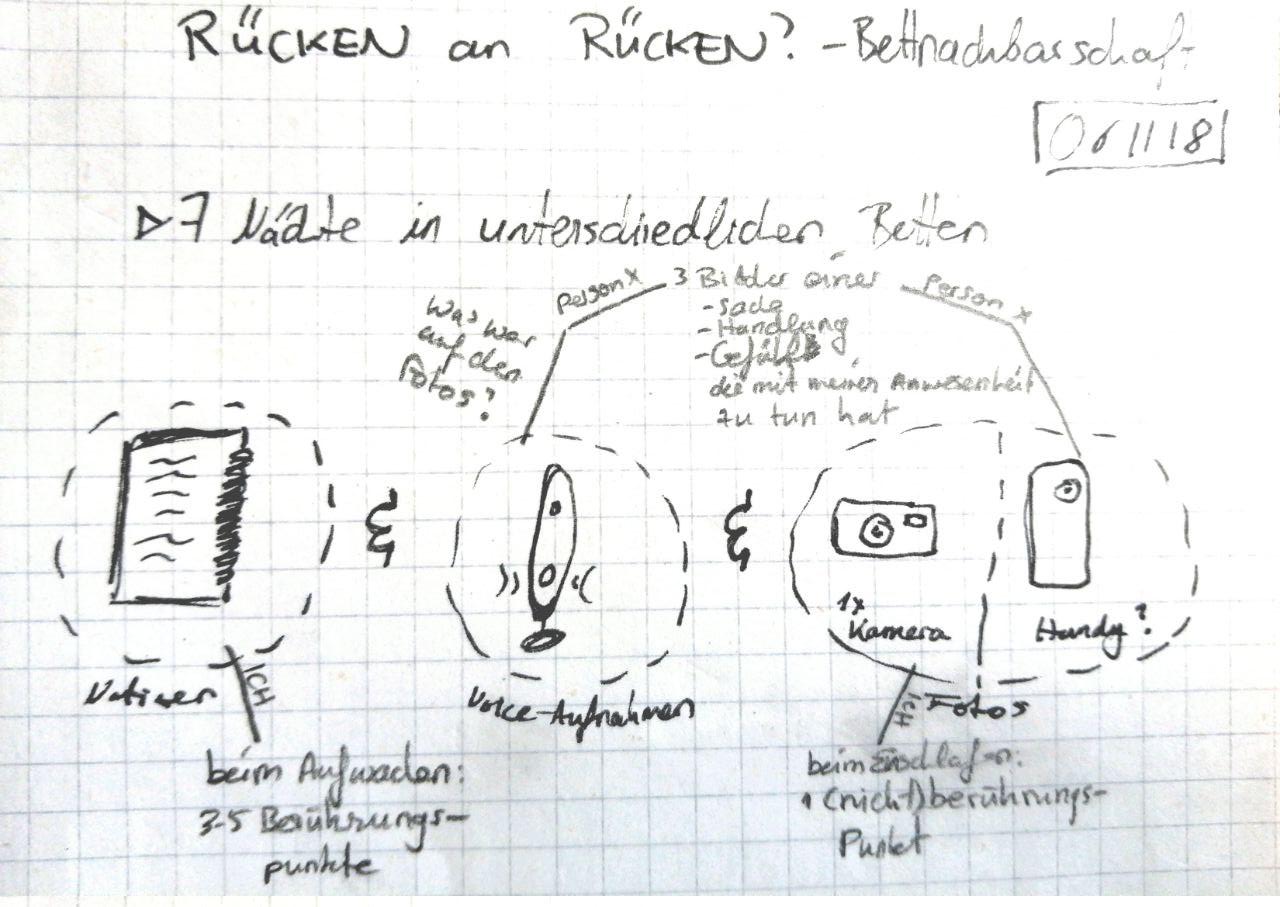 RÜCKEN an RÜCKEN? - Bettnachbarschaft
06 11 18
▷ 7 Nächte in unterschiedlichen Betten
Was war
auf den
Fotos?
Person x
3 Bilder einer
- Sache
- Handlung
- Gefühls
die mit meiner Anwesenheit
zu tun hat
Person x
&
&
1x
Kamera
Handy?
Notizen
ICH
Voice-Aufnahmen
ICH
Fotos
beim Aufwachen:
3-5 Berührungs-
punkte
beim Einschlafen:
1 (nicht)berührungs-
Punkt